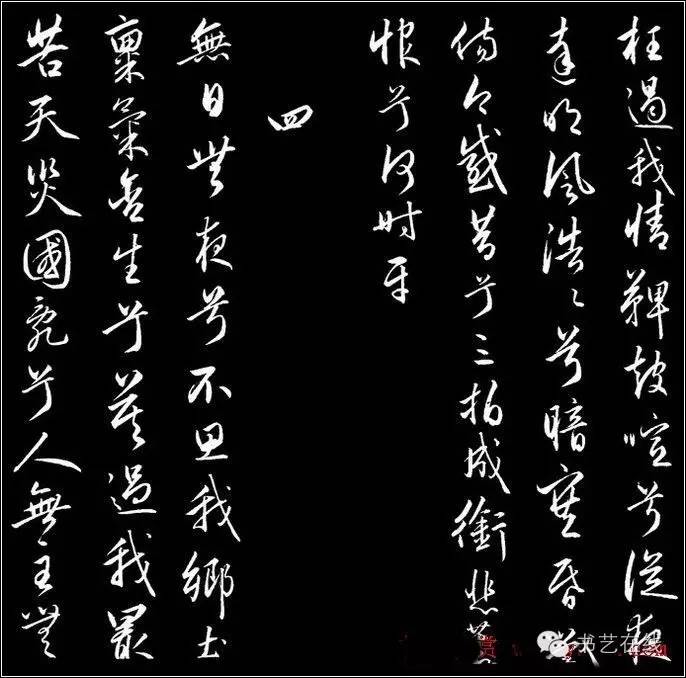 枉遏我情鞞鼓喧兮從夜
達明風浩々兮暗塞昏
傷今感昔兮三拍成銜悲
恨兮何時平
四
無日無夜兮不思我鄉土
稟氣含生兮莫過我最
苦天災國亂兮人無主無
书艺在线